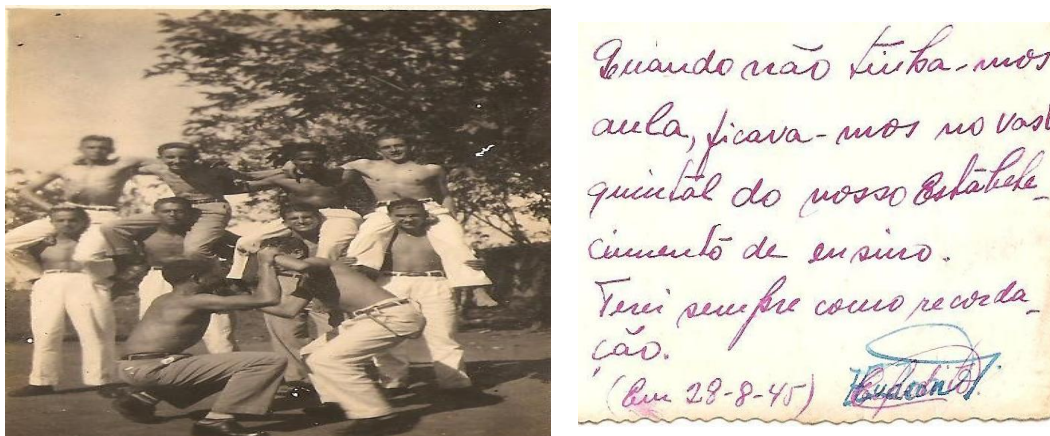 Quando não tinha-mos
aula, ficava-mos no vast
quintál do nosso Estábele_
cimentô de ensino.
Terei sempre como recorda_
ção.
(Em 28-8-45)